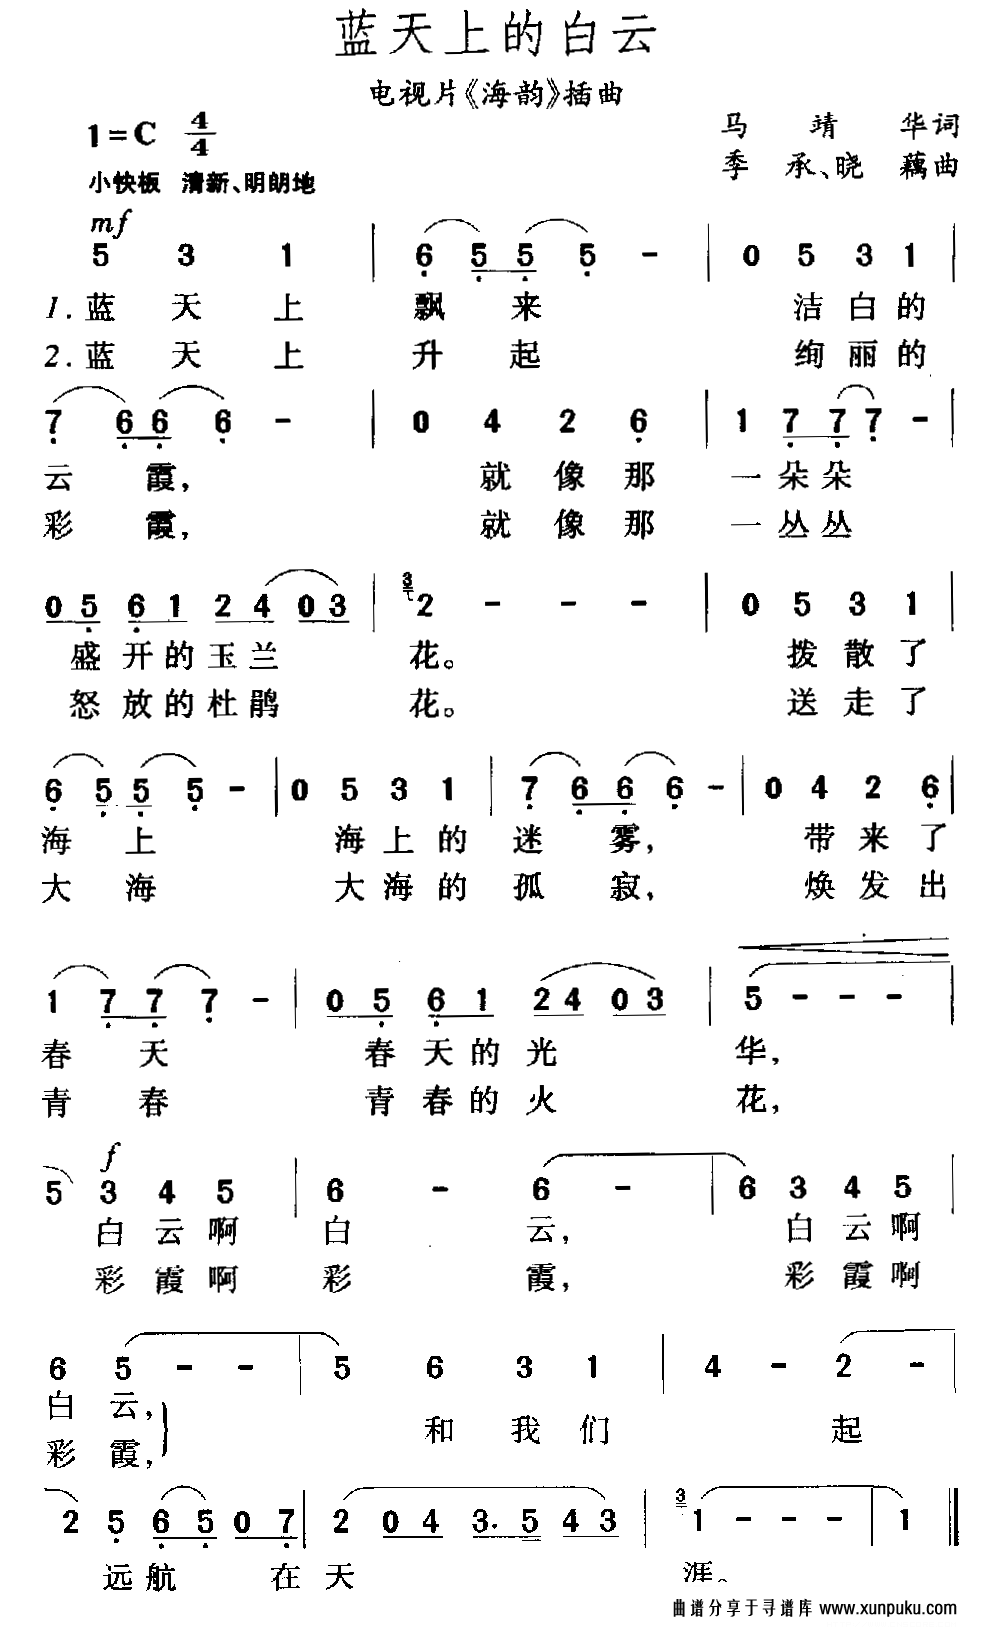 蓝天上的白云
电视片《海韵》插曲
1=C 4/4
马靖华词
季承、晓藕曲
小快板 清新、明朗地
mf
5 3 1 | 6 5 5 5 - | 0 5 3 1 |
1.蓝天上 飘来 洁白的
2.蓝天上 升起 绚丽的
7 6 6 6 - | 0 4 2 6 | 1 7 7 7 - |
云霞, 就像那 一朵朵
彩霞, 就像那 一丛丛
0 5 6 1 2 4 0 3 | 3 2 - - - | 0 5 3 1 |
盛开的玉兰 花。 拨散了
怒放的杜鹃 花。 送走了
6 5 5 5 - | 0 5 3 1 | 7 6 6 6 - | 0 4 2 6 |
海上 海上的 迷雾, 带来了
大海 大海的 孤寂, 焕发出
1 7 7 7 - | 0 5 6 1 2 4 0 3 | 5 - - - |
春天 春天的光 华,
青春 青春的火 花,
f
5 3 4 5 | 6 - 6 - | 6 3 4 5 |
白云啊 白云, 白云啊
彩霞啊 彩霞, 彩霞啊
6 5 - - | 5 6 3 1 | 4 - 2 - |
白云,
彩霞,
和我们 起
2 5 6 5 0 7 | 2 0 4 3. 5 4 3 | 3 1 - - - | 1 ‖
远航 在天 涯。
曲谱分享于寻谱库 www.xunpuku.com